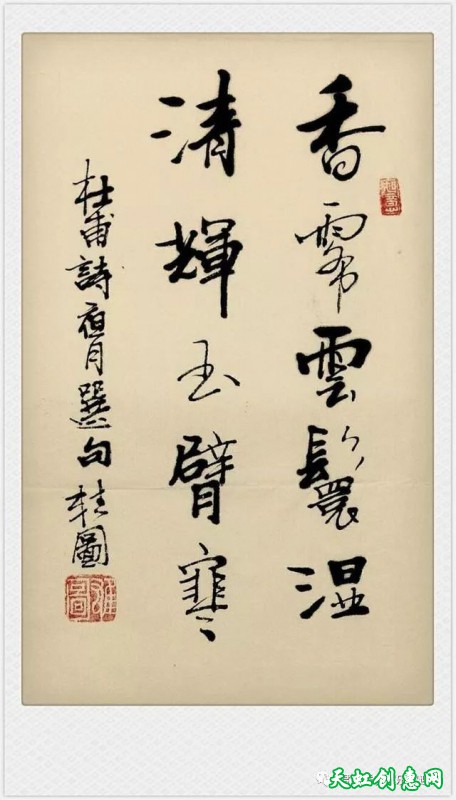 香霧雲鬟湿
清輝玉臂寒
杜甫詩夜月選句 圖
天虹创惠网